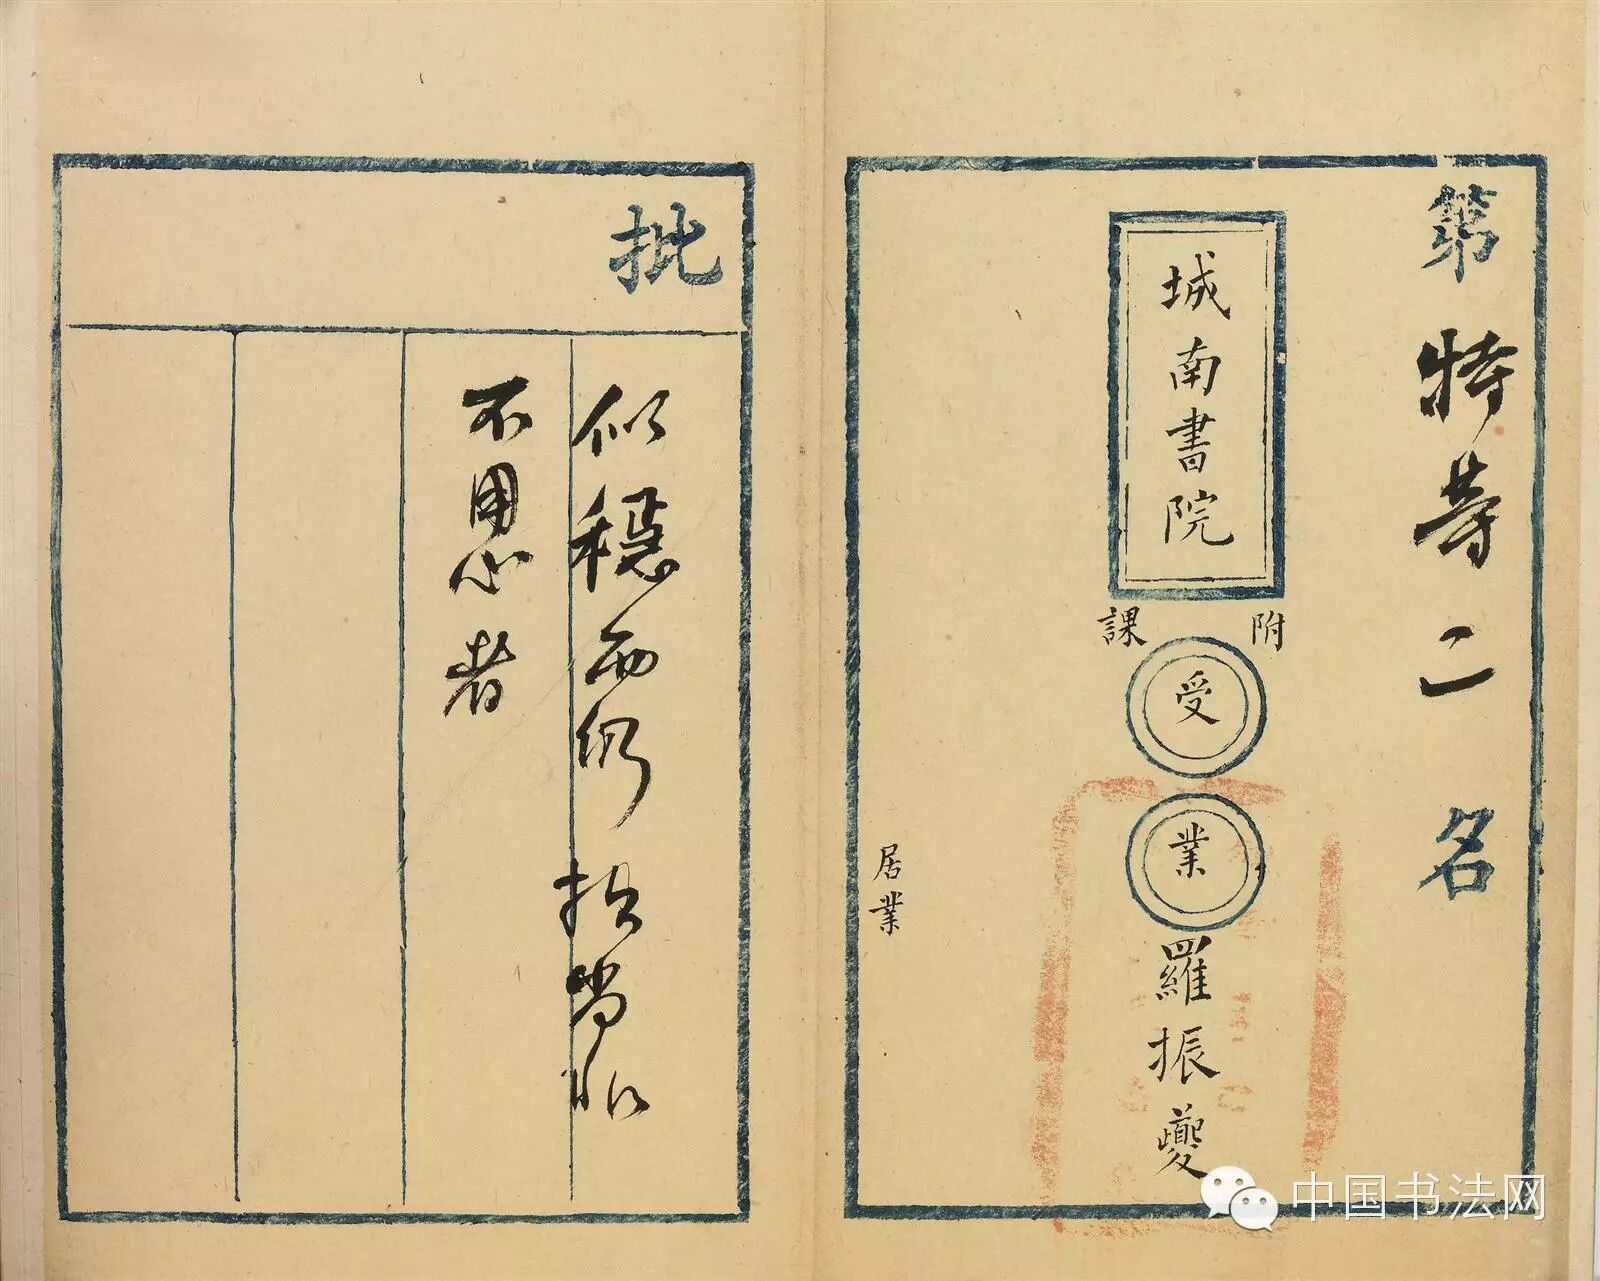 第特等二名
城南書院
附課
受業羅振夔
居業
批
似穩而仍拙尚非
不用心者
中国书法网